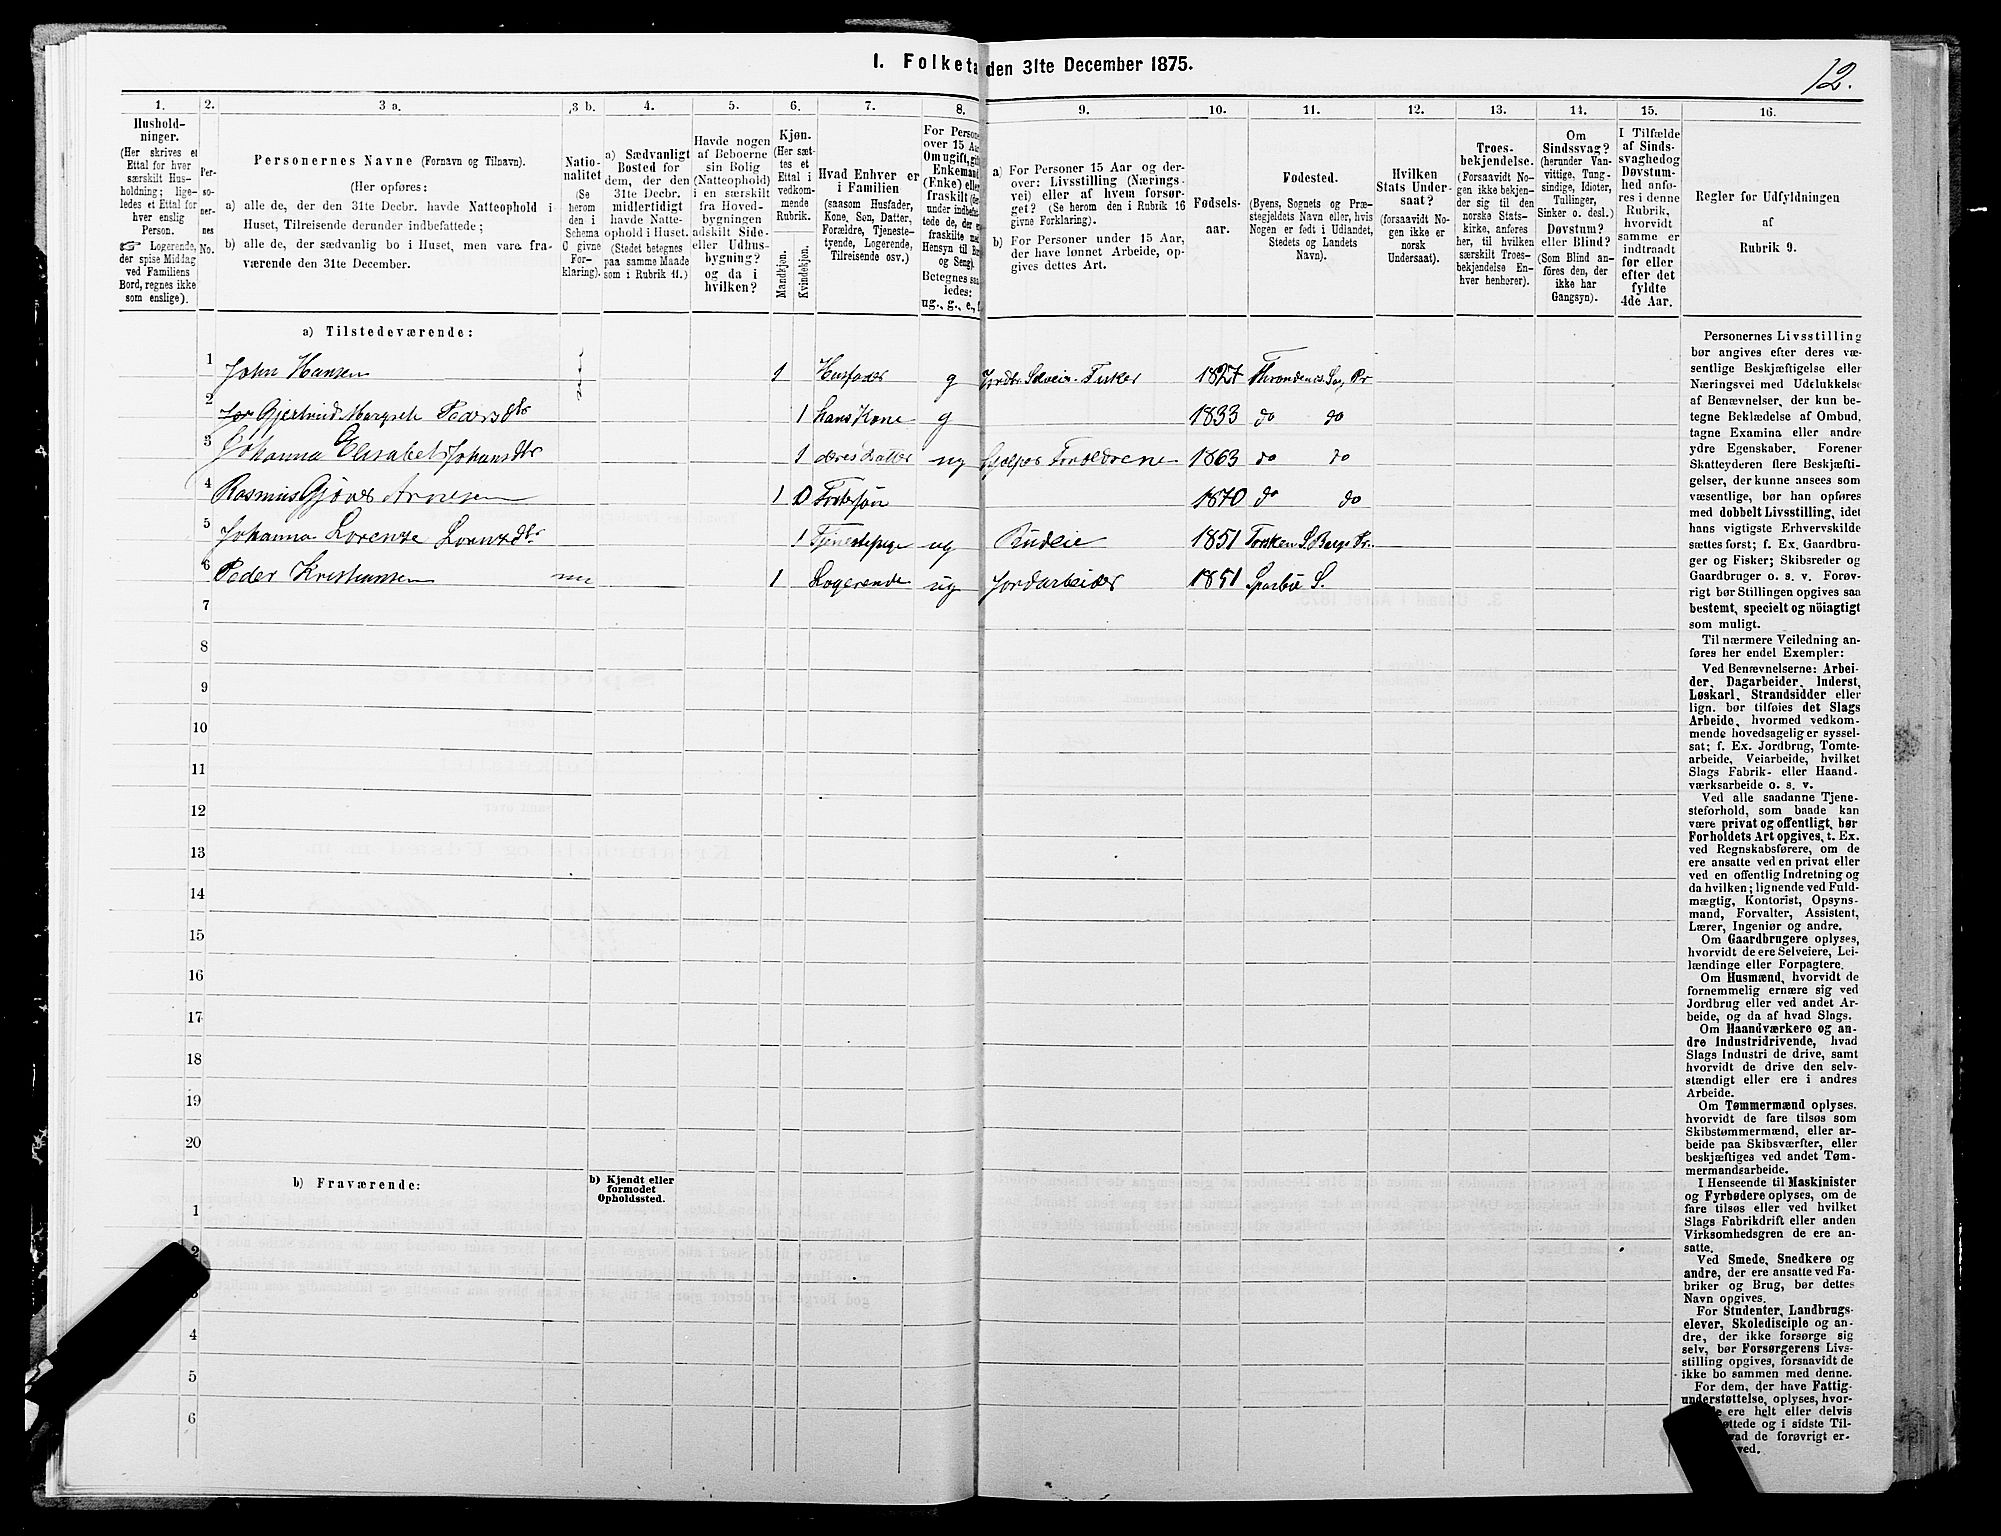 I. Folketa den 31te December 1875.
12.
1.
2.
3 a.
3 b.
4.
5.
6.
7.
8.
9.
10.
11.
12.
13.
14.
15.
16.
Hushold-
ninger.
(Her skrives et
Ettal for hver
særskilt Hus-
holdning; lige-
ledes et Ettal for
hver enslig
Person.
☞ Logerende,
der spise Middag
ved Familiens
Bord, regnes ikke
som enslige).
Per-
so-
ner-
nes
No.
Personernes Navne (Fornavn og Tilnavn).
(Her opføres:
a) alle de, der den 31te Decbr. havde Natteophold i
Huset, Tilreisende derunder indbefattede;
b) alle de, der sædvanlig bo i Huset, men vare fra-
værende den 31te December.
Natio-
nalitet
(Se
herom
den i
Schema
C givne
For-
klaring).
a) Sædvanligt
Bosted for
dem, der den
31te Decbr.
midlertidigt
havde Natte-
ophold i Huset.
(Stedet betegnes
paa samme Maade
som i Rubrik 11.)
Havde nogen
af Beboerne
sin Bolig
(Natteophold)
i en særskilt
fra Hoved-
bygningen
adskilt Side-
eller Udhus-
bygning?
og da i
hvilken?
Kjøn.
(Her sæt-
tes et
Ettal i
vedkom-
mende
Rubrik.
Mandkjøn.
Kvindekjøn.
Hvad Enhver er
i Familien
(saasom Husfader,
Kone, Søn, Datter,
Forældre, Tjeneste-
tyende, Logerende,
Tilreisende osv.)
For Persone
over 15 Aar
Om ugift, gift
Enkemand
(Enke) eller
fraskilt (der
under indbefat-
tede de, der er
fraskilte med
Hensyn til Bor
og Seng).
Betegnes saa
ledes:
ug., g., e., f.
a) For Personer 15 Aar og der-
over: Livsstilling (Nærings-
vei) eller af hvem forsør-
get? (Se herom den i Rubrik 16
givne Forklaring).
b) For Personer under 15 Aar,
der have lønnet Arbeide, op-
gives dettes Art.
Fødsels-
aar.
Fødested.
(Byens, Sognets og Præ-
stegjeldets Navn eller, hvis
Nogen er født i Udlandet,
Stedets og Landets
Navn).
Hvilken
Stats Under-
saat?
(forsaavidt No-
gen ikke er
norsk
Undersaat).
Troes-
bekjendelse.
(Forsaavidt No-
gen ikke bekjen-
der sig til den
norske Stats-
kirke, anføres
her, til hvilken
særskilt Troes-
bekjendelse En-
hver henhører).
Om
Sindssvag?
(herunder Van-
vittige, Tung-
sindige, Idioter,
Tullinger,
Sinker o. desl.)
Døvstum?
eller Blind?
(Som Blind an-
føres den, der
ikke har
Gangsyn).
I Tilfælde
af Sinds-
svaghed og
Døvstum-
hed anfø-
res i denne
Rubrik,
hvorvidt
samme er
indtraadt
før eller
efter det
fyldte
4de Aar.
Regler for Udfyldningen
af
Rubrik 9.
a) Tilstedeværende:
1 John Hansen 1 Husfader g Jordbr Selveier Fisker 1827 Throndenes Sog, Pr
2 Gjertrud Margret Pedersdtr 1 hans Kone g 1833 do do
3 Johanna Elisabet Johansdtr 1 deres Datter ug hjelper Foreldrene 1863 do do
4 Rasmus Gjøver Arnesen 1 0 Fostersøn 1870 do do
5 Johanna Lorense Lorensdtr 1 Tjenestepige ug Budeie 1851 Torsken S. Bergs Pr.
6 Peder Kristiansen nn 1 Logerende ug Jordarbeider 1851 Sparbu S.
7
8
9
10
11
12
13
14
15
16
17
18
19
20
b) Fraværende:
b) Kjendt eller
formodet
Opholdssted.
1
2
3
4
5
6
Personernes Livsstilling
bør angives efter deres væ-
sentlige Beskjæftigelse eller
Næringsvei med Udelukkelse
af Benævnelser, der kun be-
tegne Beklædelse af Ombud,
tagne Examina eller andre
ydre Egenskaber. Forener
Skatteyderen flere Beskjæfti-
gelser, der kunne ansees som
væsentlige, bør han opføres
med dobbelt Livsstilling, idet
hans vigtigste Erhvervskilde
sættes først; f. Ex. Gaardbru-
ger og Fisker; Skibsreder og
Gaardbruger o. s. v. Forøv-
rigt bør Stillingen opgives saa
bestemt, specielt og nöiagtigt
som muligt.
Til nærmere Veiledning an-
føres her endel Exempler:
Ved Benævnelserne: Arbei-
der, Dagarbeider, Inderst,
Løskarl, Strandsidder eller
lign. bør tilføies det Slags
Arbeide, hvormed vedkom-
mende hovedsagelig er syssel-
sat; f. Ex. Jordbrug, Tomte-
arbeide, Veiarbeide, hvilket
Slags Fabrik- eller Haand-
værksarbeide o. s. v.
Ved alle saadanne Tjene-
steforhold, som baade kan
være privat og offentligt, bør
Forholdets Art opgives, t. Ex.
ved Regnskabsførere, om de
ere ansatte ved en privat eller
ved en offentlig Indretning og
da hvilken; lignende ved Fuld-
mægtig, Kontorist, Opsyns-
mand, Forvalter, Assistent,
Lærer, Ingeniør og andre.
Om Gaardbrugere oplyses,
hvorvidt de ere Selveiere, Lei-
lændinge eller Forpagtere.
Om Husmænd, hvorvidt de
fornemmelig ernære sig ved
Jordbrug eller ved andet Ar-
beide, og da af hvad Slags.
Om Haandværkere og an-
dre Industridrivende, hvad
Slags Industri de drive, samt
hvorvidt de drive den selv-
stændigt eller ere i andres
Arbeide.
Om Tømmermænd oplyses,
hvorvidt de fare tilsøs som
Skibstømmermænd, eller ar-
beide paa Skibsværfter, eller
beskjæftiges ved andet Tøm-
mermandsarbeide.
I Henseende til Maskinister
og Fyrbødere oplyses, om de
fare tilsøs eller ved hvilket
Slags Fabrikdrift eller anden
Virksomhedsgren de ere an-
satte.
Ved Smede, Snedkere og
andre, der ere ansatte ved Fa-
briker og Brug, bør dettes
Navn opgives.
For Studenter, Landbrugs-
elever, Skoledisciple og an-
dre, der ikke forsørge sig
selv, bør Forsørgerens Livs-
stilling opgives, forsaavidt de
ikke bo sammen med denne.
For dem, der have Fattig-
understøttelse, oplyses, hvor-
ere helt eller delvis
øttede og i sidste Til-
vad de forøvrigt er-
ved.